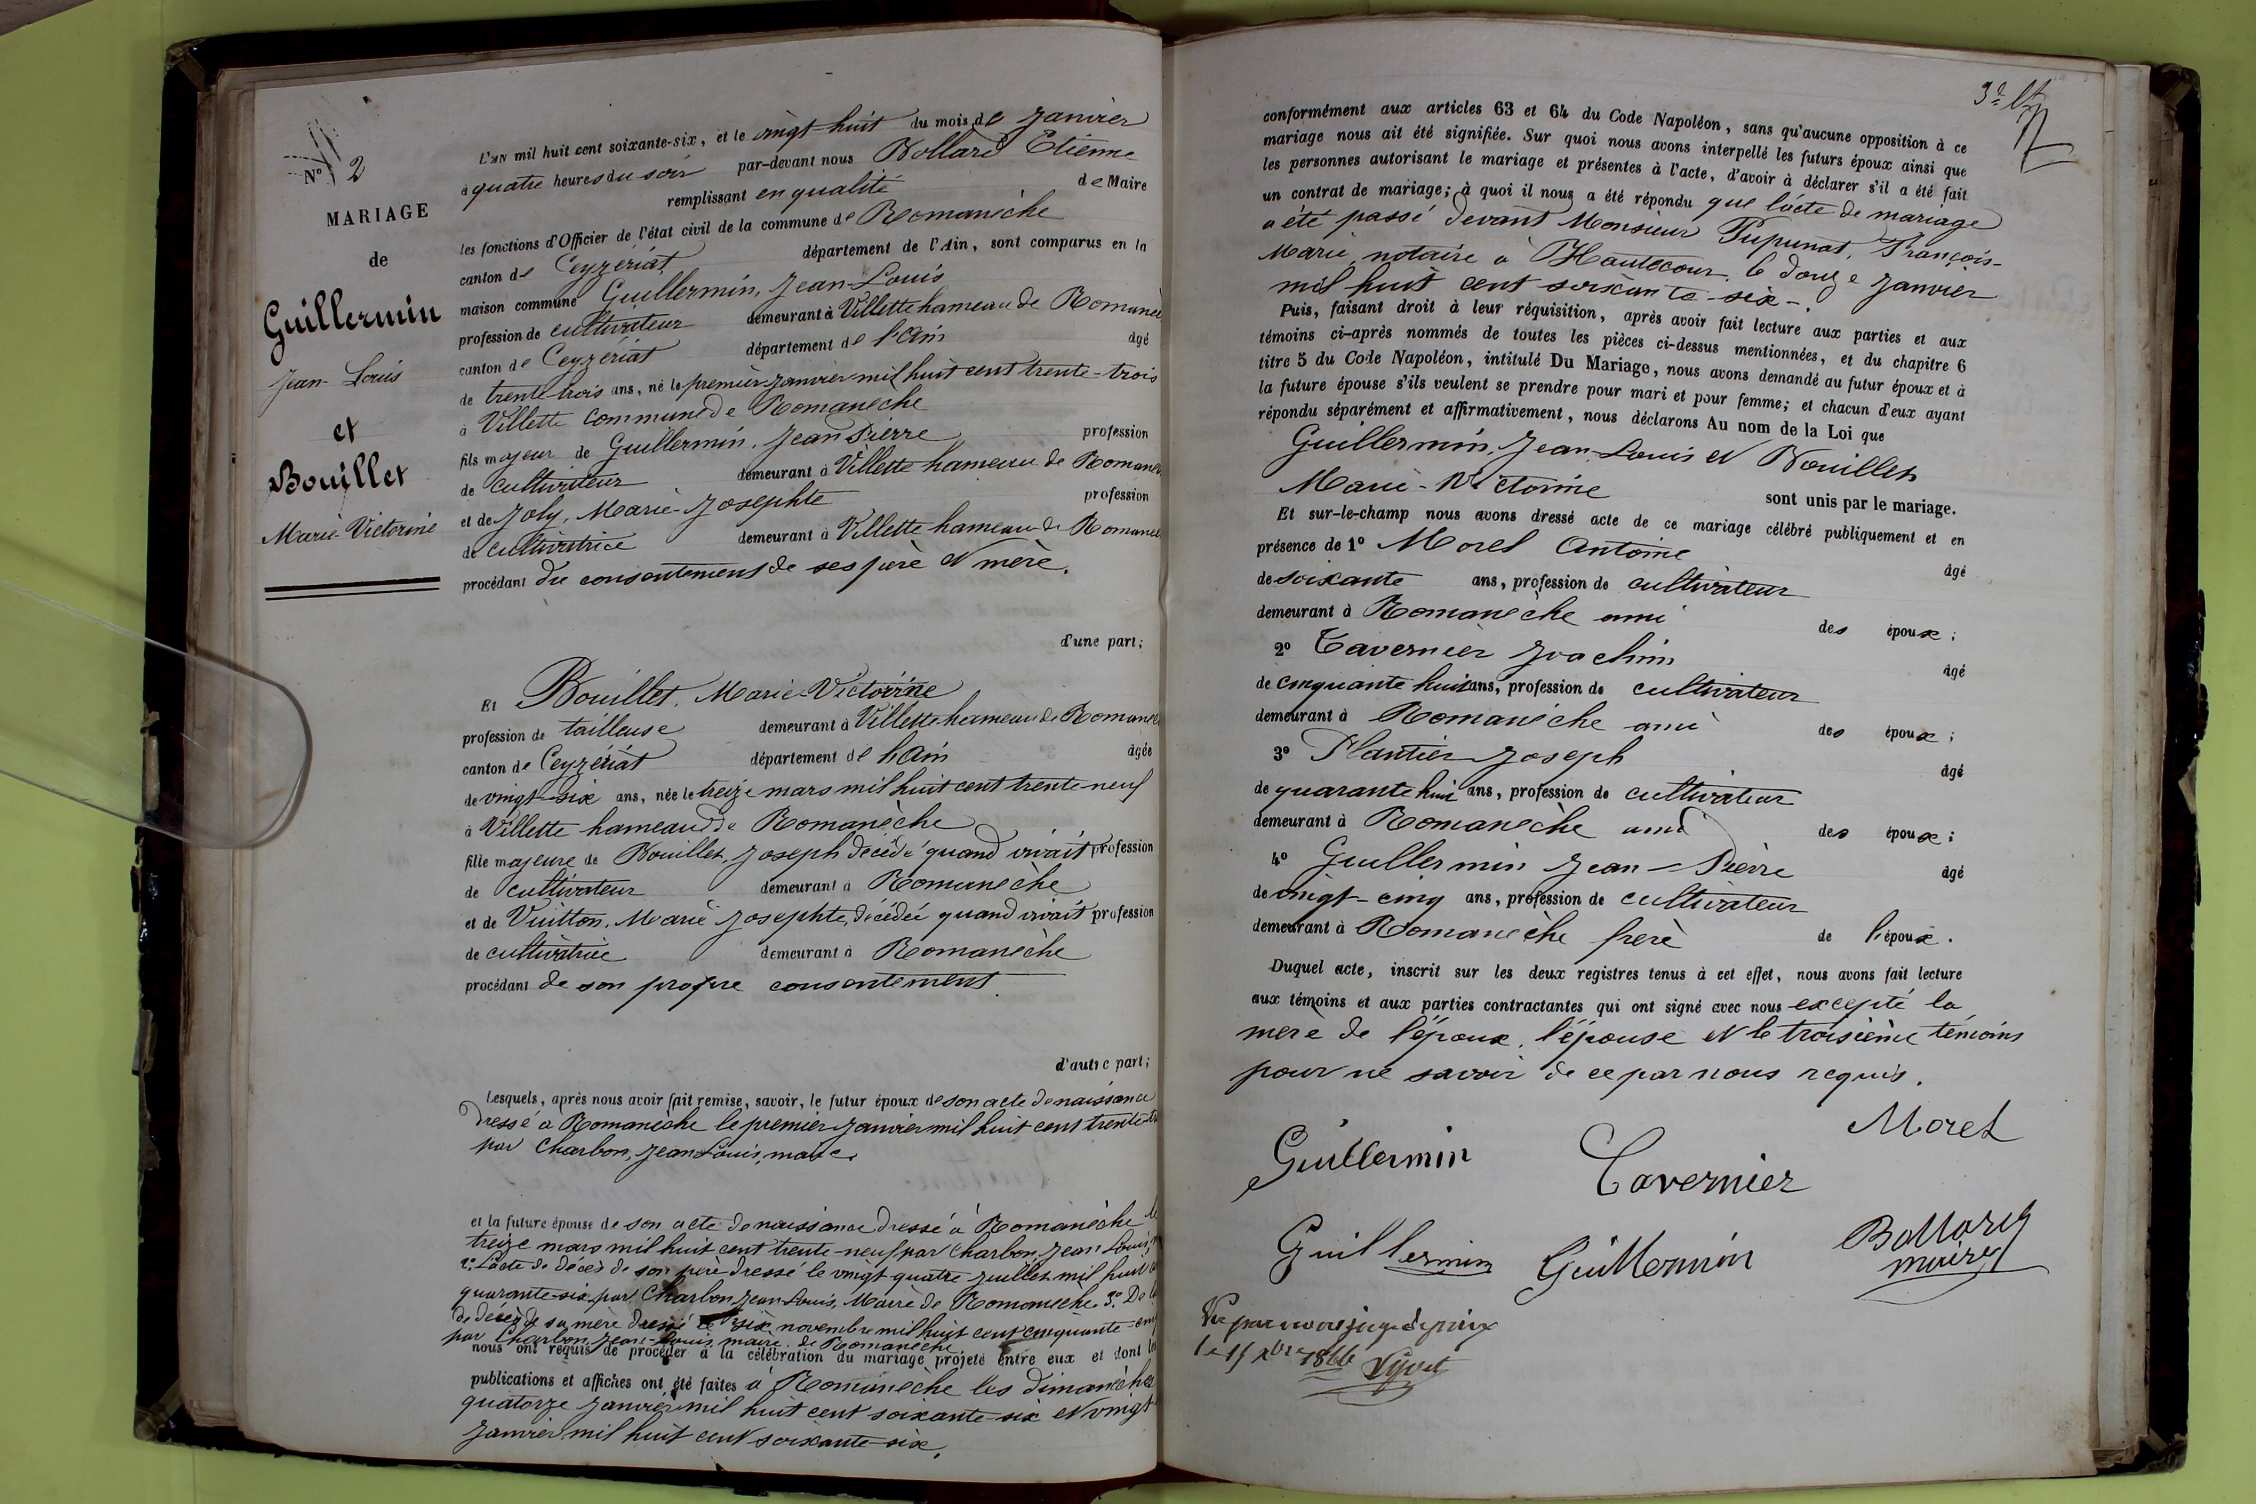 N° 2
MARIAGE
de
Guillermin
Jean-Louis
et
Bouillet
Marie-Victorine
L'AN mil huit cent soixante-six, et le vingt-huit du mois de Janvier
à quatre heures du soir par-devant nous Bollard Etienne
remplissant en qualité de Maire
les fonctions d'Officier de l'état civil de la commune de Romanèche
canton de Ceyzériat département de l'Ain, sont comparus en la
maison commune Guillermin, Jean-Louis
profession de cultivateur demeurant à Villette hameau de Romanè
canton de Ceyzériat département de l'Ain âgé
de trente-trois ans, né le premier Janvier mil huit cent trente-trois
à Villette commune de Romanèche
fils majeur de Guillermin, Jean Pierre profession
de cultivateur demeurant à Villette hameau de Romanè
et de Joly, Marie-Josephte profession
de cultivatrice demeurant à Villette hameau de Romanè
procédant du consentement de ses père et mère.
d'une part;
Et Bouillet, Marie-Victorine
profession de tailleuse demeurant à Villette hameau de Romanè
canton de Ceyzériat département de l'Ain âgée
de vingt-six ans, née le treize mars mil huit cent trente-neuf
à Villette hameau de Romanèche
fille majeure de Bouillet, Joseph décédé quand vivait profession
de cultivateur demeurant à Romanèche
et de Vuitton, Marie Josephte, décédée quand vivait profession
de cultivatrice demeurant à Romanèche
procédant de son propre consentement
d'autre part;
Lesquels, après nous avoir fait remise, savoir, le futur époux de son acte de naissance
dressé à Romanèche le premier Janvier mil huit cent trente-
par Charbon, Jean Louis, maire.
et la future épouse de son acte de naissance dressé à Romanèche le
treize mars mil huit cent trente-neuf par Charbon, Jean Louis,
2° L'acte de décès de son père dressé le vingt-quatre Juillet mil huit
quarante-six par Charbon Jean-Louis, Maire de Romanèche. 3° De
de décès de sa mère dressé le six novembre mil huit cent cinquante-
par Charbon, Jean-Louis, maire de Romanèche
nous ont requis de procéder à la célébration du mariage projeté entre eux et dont les
publications et affiches ont été faites à Romanèche les dimanches
quatorze Janvier mil huit cent soixante-six et vingt
Janvier mil huit cent soixante-six.
conformément aux articles 63 et 64 du Code Napoléon, sans qu'aucune opposition à ce
mariage nous ait été signifiée. Sur quoi nous avons interpellé les futurs époux ainsi que
les personnes autorisant le mariage et présentes à l'acte, d'avoir à déclarer s'il a été fait
un contrat de mariage; à quoi il nous a été répondu que l'acte de mariage
a été passé devant Monsieur Pupunat, François-
Marie, notaire à Hautecour, le douze Janvier
mil huit cent soixante-six-
Puis, faisant droit à leur réquisition, après avoir fait lecture aux parties et aux
témoins ci-après nommés de toutes les pièces ci-dessus mentionnées, et du chapitre 6
titre 5 du Code Napoléon, intitulé Du Mariage, nous avons demandé au futur époux et à
la future épouse s'ils veulent se prendre pour mari et pour femme; et chacun d'eux ayant
répondu séparément et affirmativement, nous déclarons Au nom de la Loi que
Guillermin, Jean-Louis et Bouillet
Marie-Victorine sont unis par le mariage.
Et sur-le-champ nous avons dressé acte de ce mariage célébré publiquement et en
présence de 1° Morel Antoine âgé
de soixante ans, profession de cultivateur
demeurant à Romanèche ami des époux;
2° Tavernier Joachim âgé
de cinquante huit ans, profession de cultivateur
demeurant à Romanèche ami des époux;
3° Plantier Joseph âgé
de quarante huit ans, profession de cultivateur
demeurant à Romanèche ami des époux;
4° Guillermin Jean-Pierre âgé
de vingt-cinq ans, profession de cultivateur
demeurant à Romanèche frère de l'époux.
Duquel acte, inscrit sur les deux registres tenus à cet effet, nous avons fait lecture
aux témoins et aux parties contractantes qui ont signé avec nous excepté la
mère de l'époux, l'épouse et le troisième témoins
pour ne savoir de ce par nous requis.
Morel
Guillermin
Tavernier
Guillermin Guillermin Bollard
maire
Vu par nous juge de paix
le 15 Xbre 1866